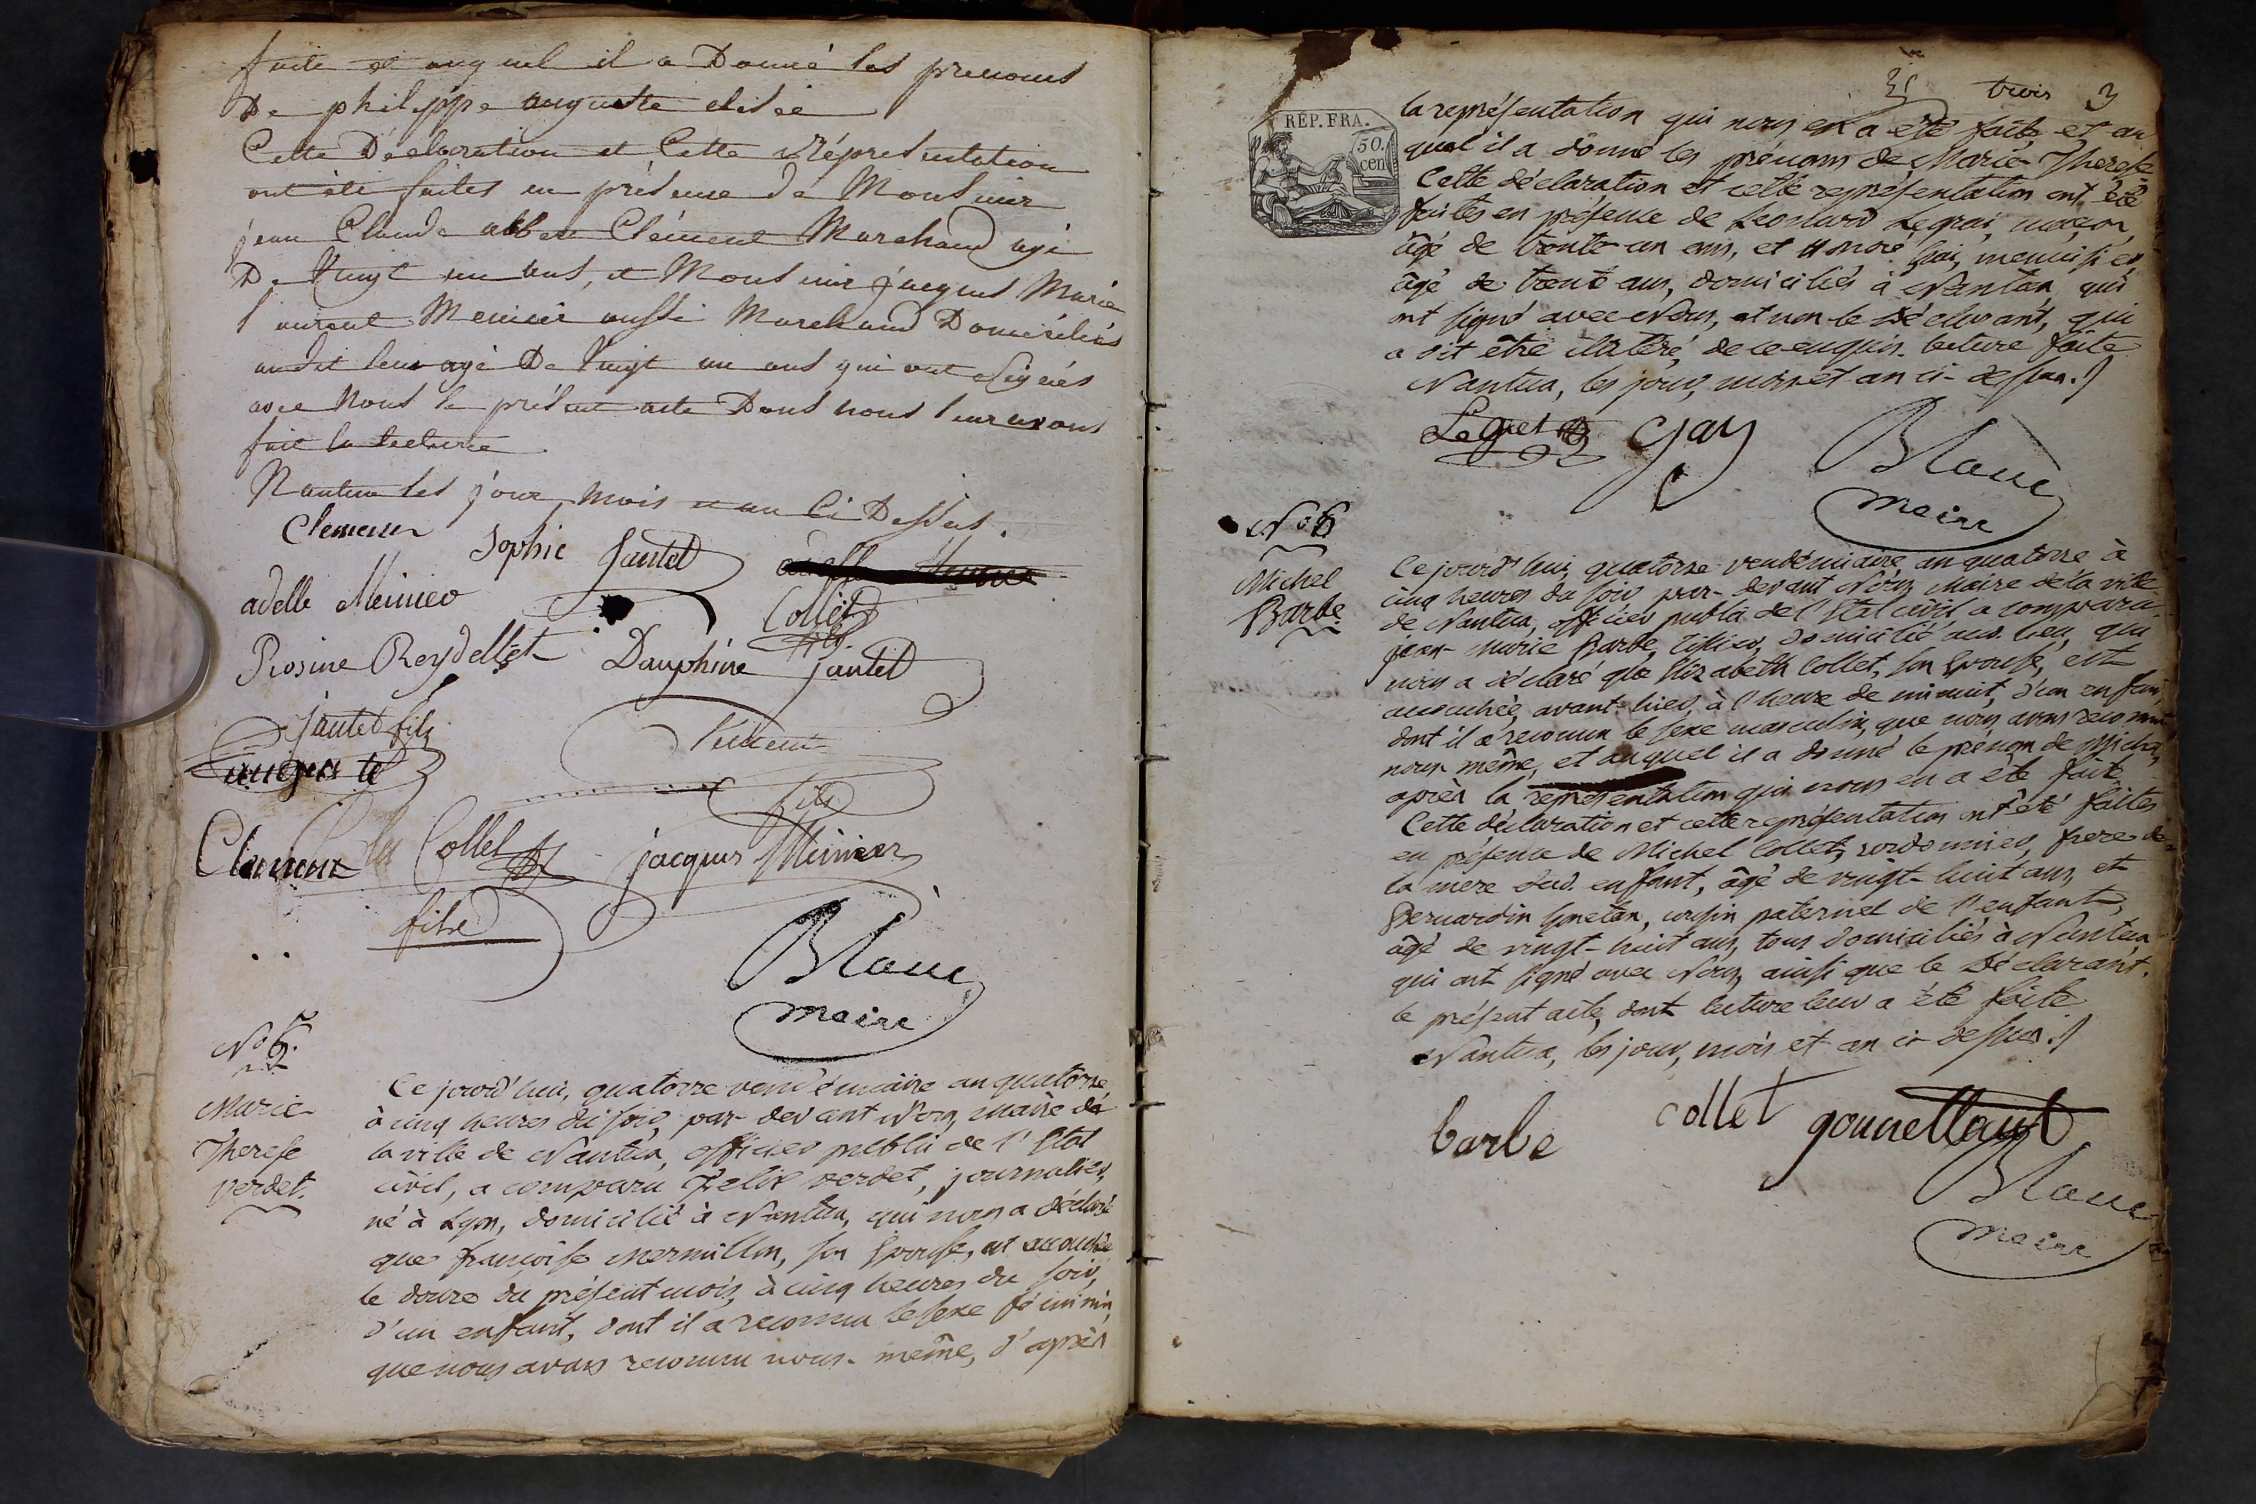 faite et auquel il a Donné les prenoms
De philippe auguste elisée
Cette Déclaration et Cette Réprésentation
ont été faites en présence de Monsieur
jean Claude albere Clément Marchand agé
De Vingt un ans, et Monsieur jacques Marie
laurent Meinier aussi Marchand Domiciliés
audit lieu agé De Vingt un ans qui ont signés
avec Nous le présent acte Dont nous leur avons
fait la lecture
Nantua les jour, mois et an Ci Dessus.
Clement Sophie Jantet
adelle Meinier Collet
fils
Rosine Reydellet Dauphine jantet
jantet fils
Clement
fils
Clement Collet jacques Meinier
fils
Blanc
maire
No 5.
Marie
Therese
verdet.
Ce jourd'hui, quatorze vendémiaire an quatorze
à cinq heures du soir, par-devant Nous, Maire de
la ville de Nantua, officier public de l'Etat
civil, a comparu Felix verdet, journalier,
né à Lyon, domicilié à Nantua, qui nous a déclaré
que françoise Mermillon, son Epouse, est accouchée
le douze du présent mois, à cinq heures du soir,
d'un enfant, dont il a reconnu le sexe féminin,
que nous avons reconnu nous-même, d'après
trois 3
RÉP. FRA.
50.
cen
la représentation qui nous en a été faite, et au
quel il a donné les prénoms de Marie-Therese
Cette déclaration et cette représentation ont été
faites en présence de Leonard Legrai, maçon,
âgé de trente un ans, et Honoré Gai, menuisier,
âgé de trente ans, domiciliés à Nantua, qui
ont signé avec Nous, et non le Déclarant, qui
a dit être illitéré, de ce enquis. lecture faite
Nantua, les jour, mois et an ci-dessus.
Legret Gay
Blanc
maire
No 6
Michel
Barbe
Ce jourd'hui, quatorze vendémiaire an quatorze à
cinq heures du soir par-devant Nous Maire de la ville
de Nantua, officier public de l'Etat civil a comparu
jean-Marie Barbe, tissier, domicilié aud. lieu, qui
nous a déclaré que Elizabeth Collet, son Epouse, est
accouchée, avant-hier, à l'heure de minuit, d'un enfant,
dont il a reconnu le sexe masculin, que nous avons reconnu
nous-même, et auquel il a donné le prénom de Michel,
après la représentation qui nous en a été faite
Cette déclaration et cette représentation ont été faites
en présence de Michel Collet, cordonnier, frere de
la mere dud. enfant, âgé de vingt-huit ans, et
Bernardin Gonetan, cousin paternel de l'enfant,
âgé de vingt-huit ans, tous domiciliés à Nantua
qui ont signé avec Nous, ainsi que le Déclarant.
le présent acte, dont lecture leur a été faite
Nantua, les jour, mois et an ci-dessus.
barbe collet gounettant
Blanc
maire